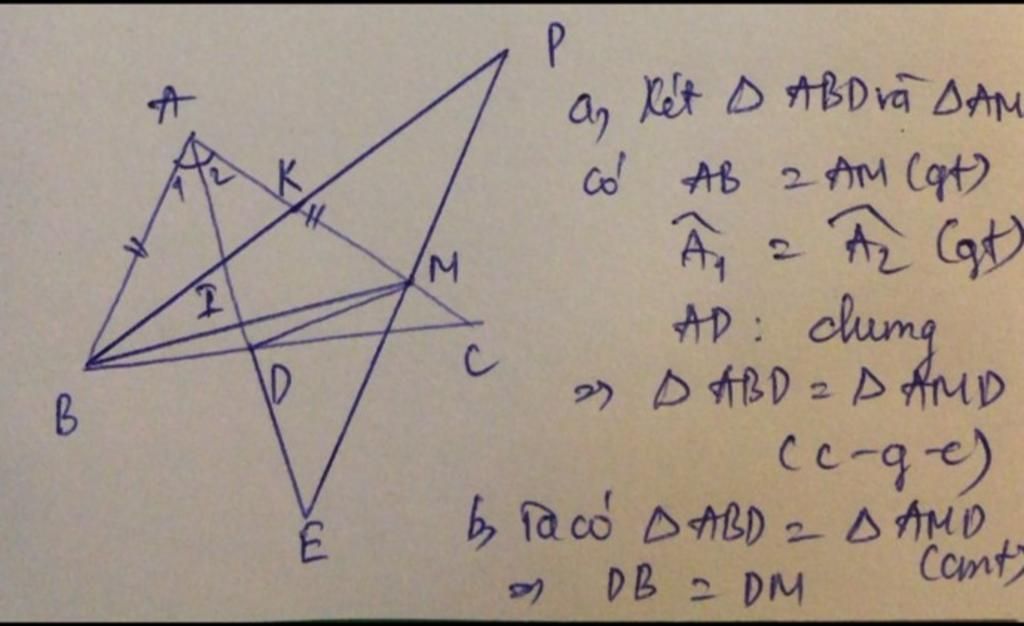 A
1
2
K
P
I
M
B
D
C
E
a, Xét Δ ABD và ΔAM
có AB = AM (gt)
Â₁ = Â₂ (gt)
AD: chung
=> Δ ABD = Δ AMD
(c-g-c)
b, Ta có Δ ABD = Δ AMD
(cmt)
=> DB = DM